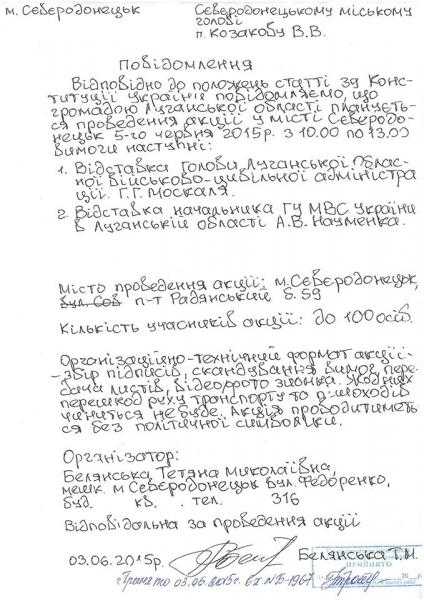 м. Сєвєродонецьк
Сєвєродонецькому міському
голові
п. Козакову В.В.
Повідомлення
Відповідно до положень статті 39 Конс-
титуції України повідомляємо, що
громадою Луганської області плануєть-
ся проведення акції у місті Сєвєродо-
нецьк 5-го червня 2015р. з 10.00 по 13.00
вимоги наступні:
1. Відставка Голови Луганської Облас-
ної військово-цивільної адміністра
ції. Г.Г. Москаля.
2. Відставка начальника ГУ МВС України
в Луганській області А.В. Науменка.
Місто проведення акції: м. Сєвєродонецьк,
бул. Сов п-т Радянський б. 59
Кількість учасників акції: до 100 осіб.
Організаційно-технічний формат акції:
- збір підписів, скандування вимог, пере-
дача листів, відео, фото зйомка. Жодних
перешкод руху транспорту та пішоходів
чинитися не буде. Акція проводитиметь
ся без політичної символіки.
Організатор:
Белянська Тетяна Миколаївна,
мешк. м Сєвєродонецьк бул. Федоренко,
буд. кв. тел. 316
Відповідальна за проведення акції
03.06.2015р. Белянська Т.М.
Прийнято
Принято 03.06.2015г. вх № Б-1967